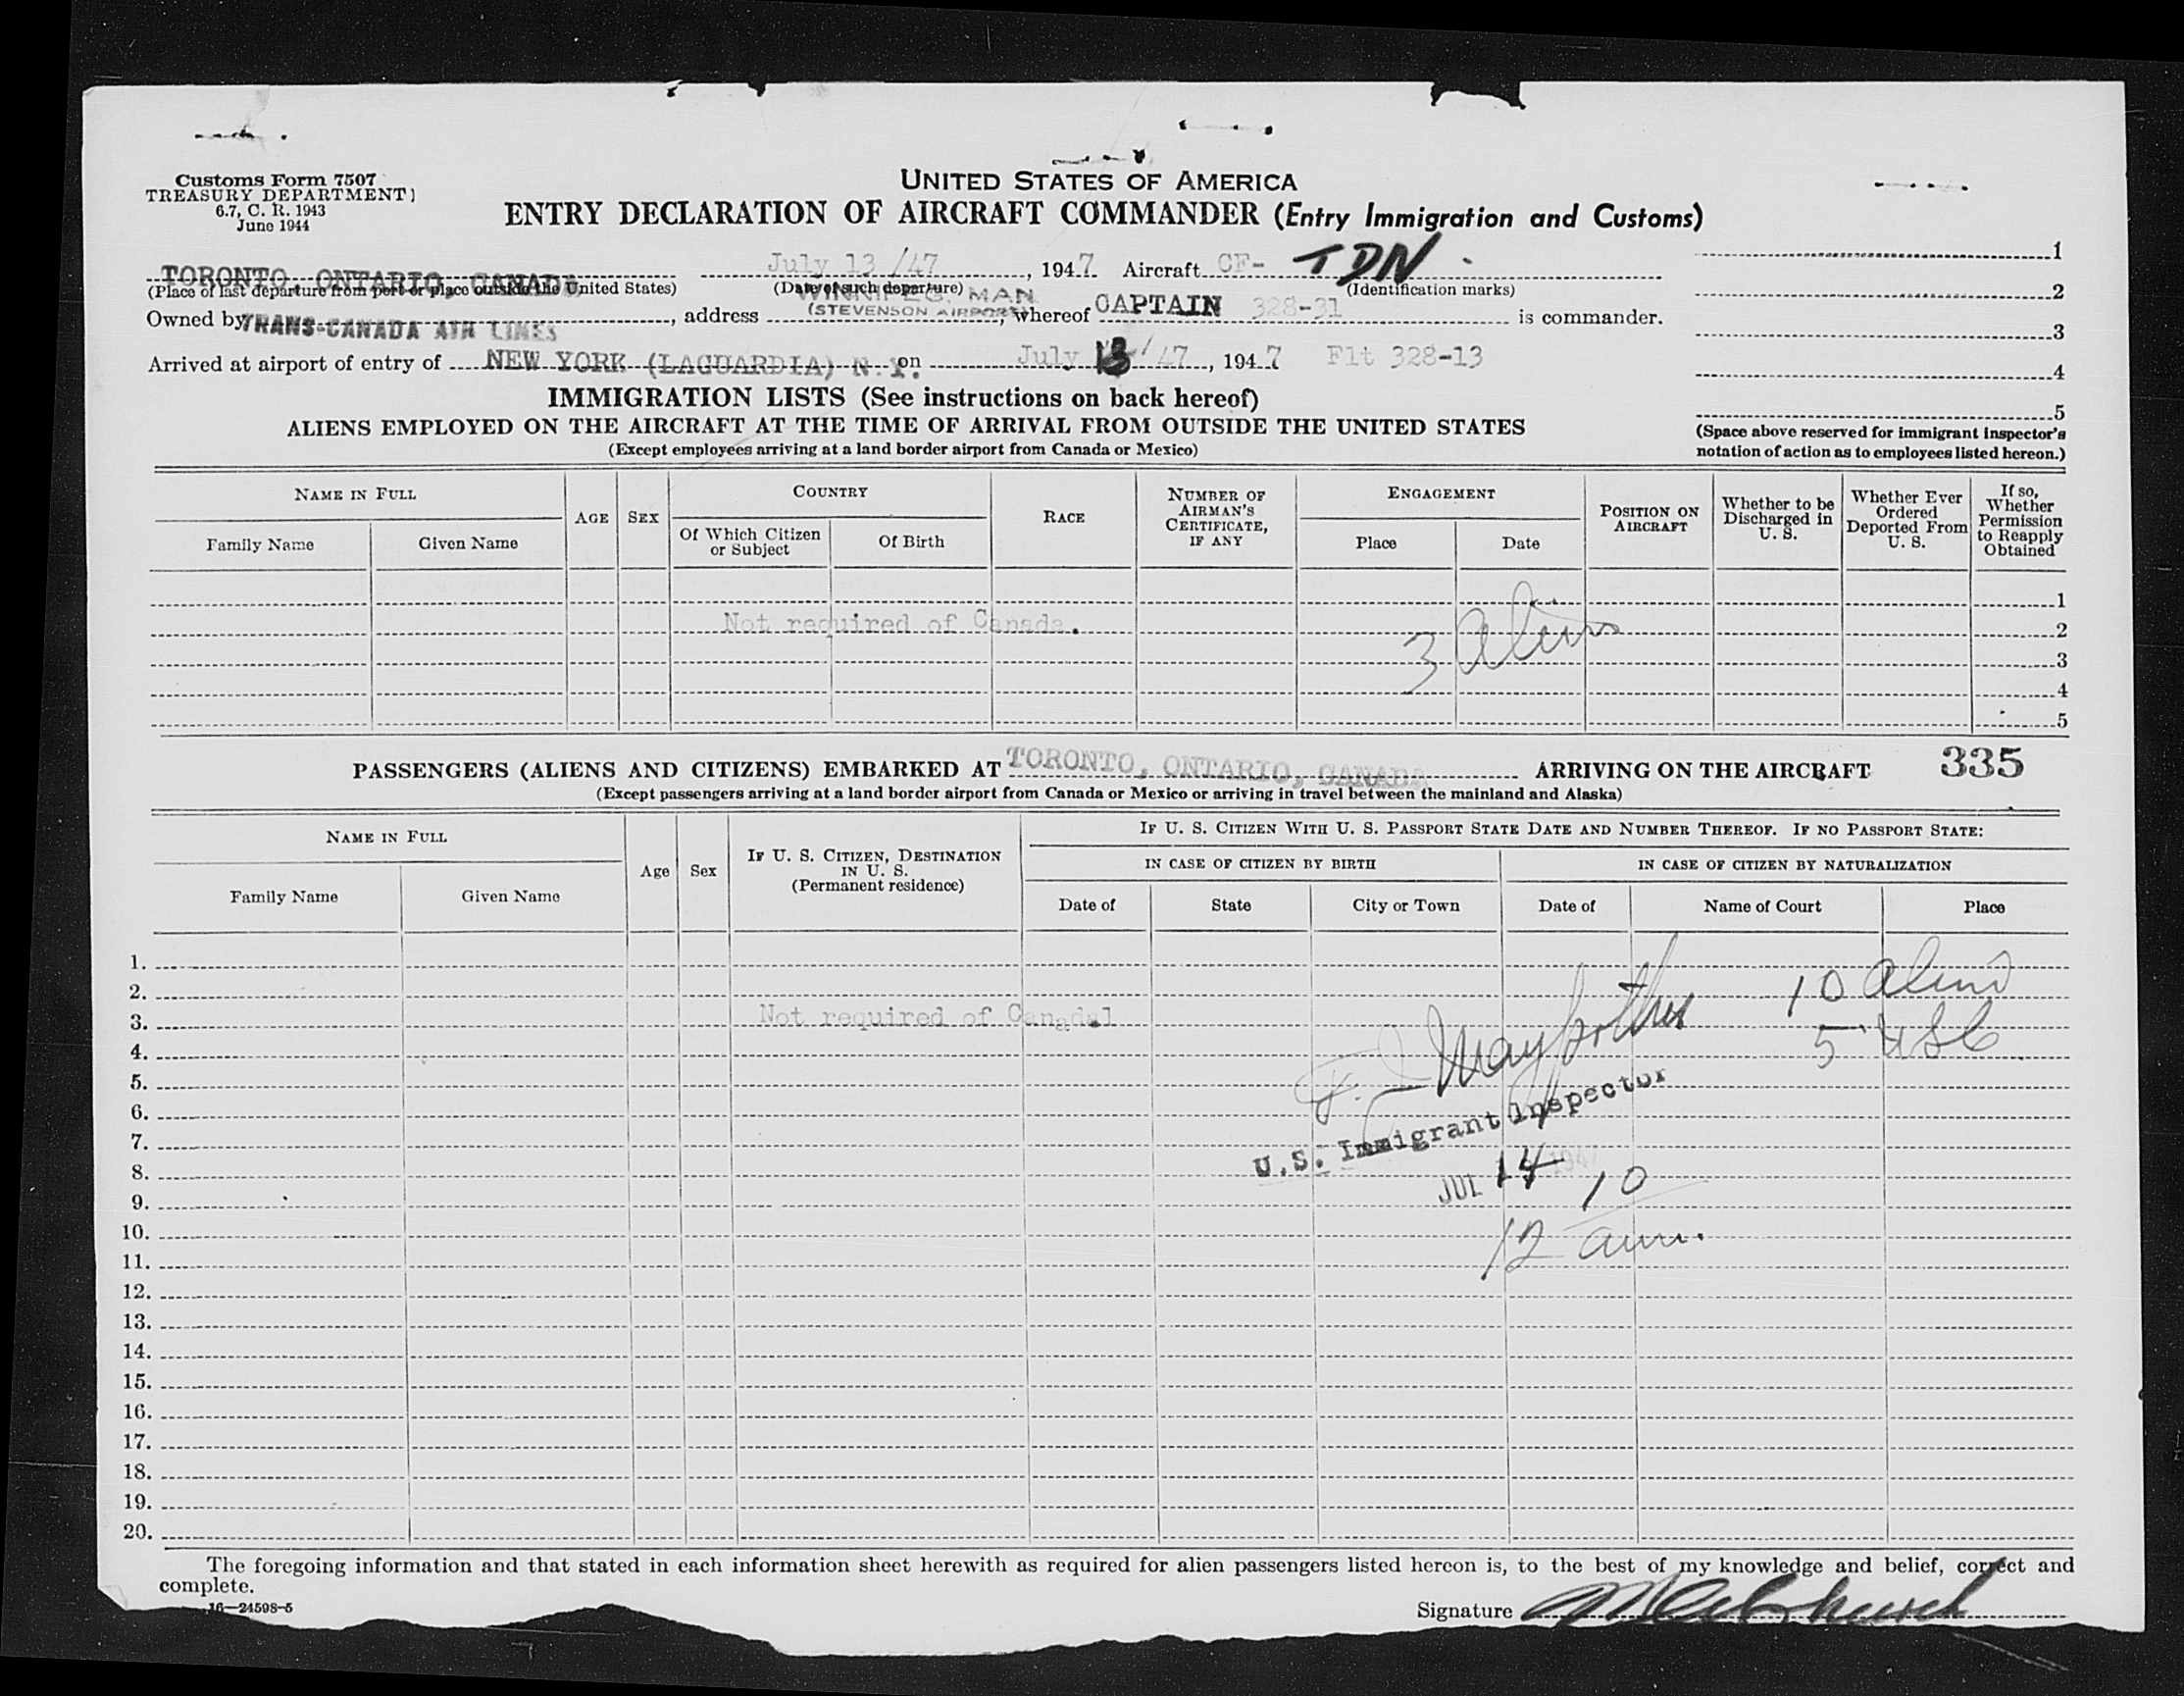 Customs Form 7507
TREASURY DEPARTMENT)
6.7, C. R. 1943
June 1944
UNITED STATES OF AMERICA
ENTRY DECLARATION OF AIRCRAFT COMMANDER (Entry Immigration and Customs)
TORONTO, ONTARIO, CANADA July 13 /47, 1947 Aircraft CF- TDN.
(Place of last departure from port or place outside the United States) (Date of such departure) (Identification marks)
WINNIPEG, MAN
(STEVENSON AIRPORT)
Owned by TRANS-CANADA AIR LINES, address, whereof CAPTAIN 328-31 is commander.
Arrived at airport of entry of NEW YORK (LAGUARDIA) N.Y. on July 13/47, 1947 Flt 328-13
1
2
3
4
5
(Space above reserved for immigrant inspector's
notation of action as to employees listed hereon.)
IMMIGRATION LISTS (See instructions on back hereof)
ALIENS EMPLOYED ON THE AIRCRAFT AT THE TIME OF ARRIVAL FROM OUTSIDE THE UNITED STATES
(Except employees arriving at a land border airport from Canada or Mexico)
NAME IN FULL
Family Name
Given Name
AGE
SEX
COUNTRY
Of Which Citizen
or Subject
Of Birth
RACE
NUMBER OF
AIRMAN'S
CERTIFICATE,
IF ANY
ENGAGEMENT
Place
Date
POSITION ON
AIRCRAFT
Whether to be
Discharged in
U. S.
Whether Ever
Ordered
Deported From
U. S.
If so,
Whether
Permission
to Reapply
Obtained
1
Not required of Canada.
3 aliens
2
3
4
5
PASSENGERS (ALIENS AND CITIZENS) EMBARKED AT TORONTO, ONTARIO, CANADA ARRIVING ON THE AIRCRAFT 335
(Except passengers arriving at a land border airport from Canada or Mexico or arriving in travel between the mainland and Alaska)
NAME IN FULL
Family Name
Given Name
Age
Sex
IF U. S. CITIZEN, DESTINATION
IN U. S.
(Permanent residence)
IF U. S. CITIZEN WITH U. S. PASSPORT STATE DATE AND NUMBER THEREOF. IF NO PASSPORT STATE:
IN CASE OF CITIZEN BY BIRTH
IN CASE OF CITIZEN BY NATURALIZATION
Date of
State
City or Town
Date of
Name of Court
Place
1.
10 aliens
2.
Not required of Canada1
3.
5 USC
4.
5.
6.
U.S. Immigrant Inspector
7.
8.
JUL 14 1947
10
9.
10.
12 am.
11.
12.
13.
14.
15.
16.
17.
18.
19.
20.
The foregoing information and that stated in each information sheet herewith as required for alien passengers listed hereon is, to the best of my knowledge and belief, correct and
complete.
16—24598-5
Signature